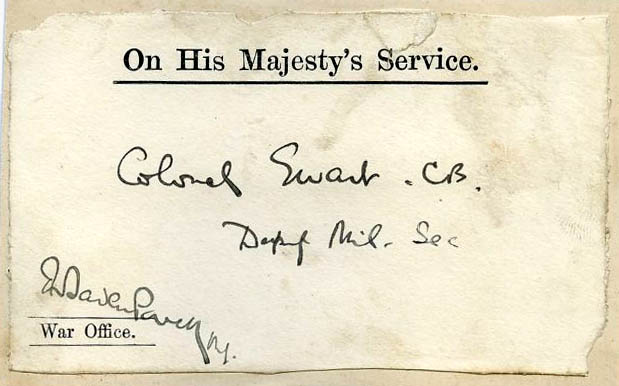 On His Majesty's Service.
Colonel Ewart . CB.
Deputy Mil. Sec
War Office.